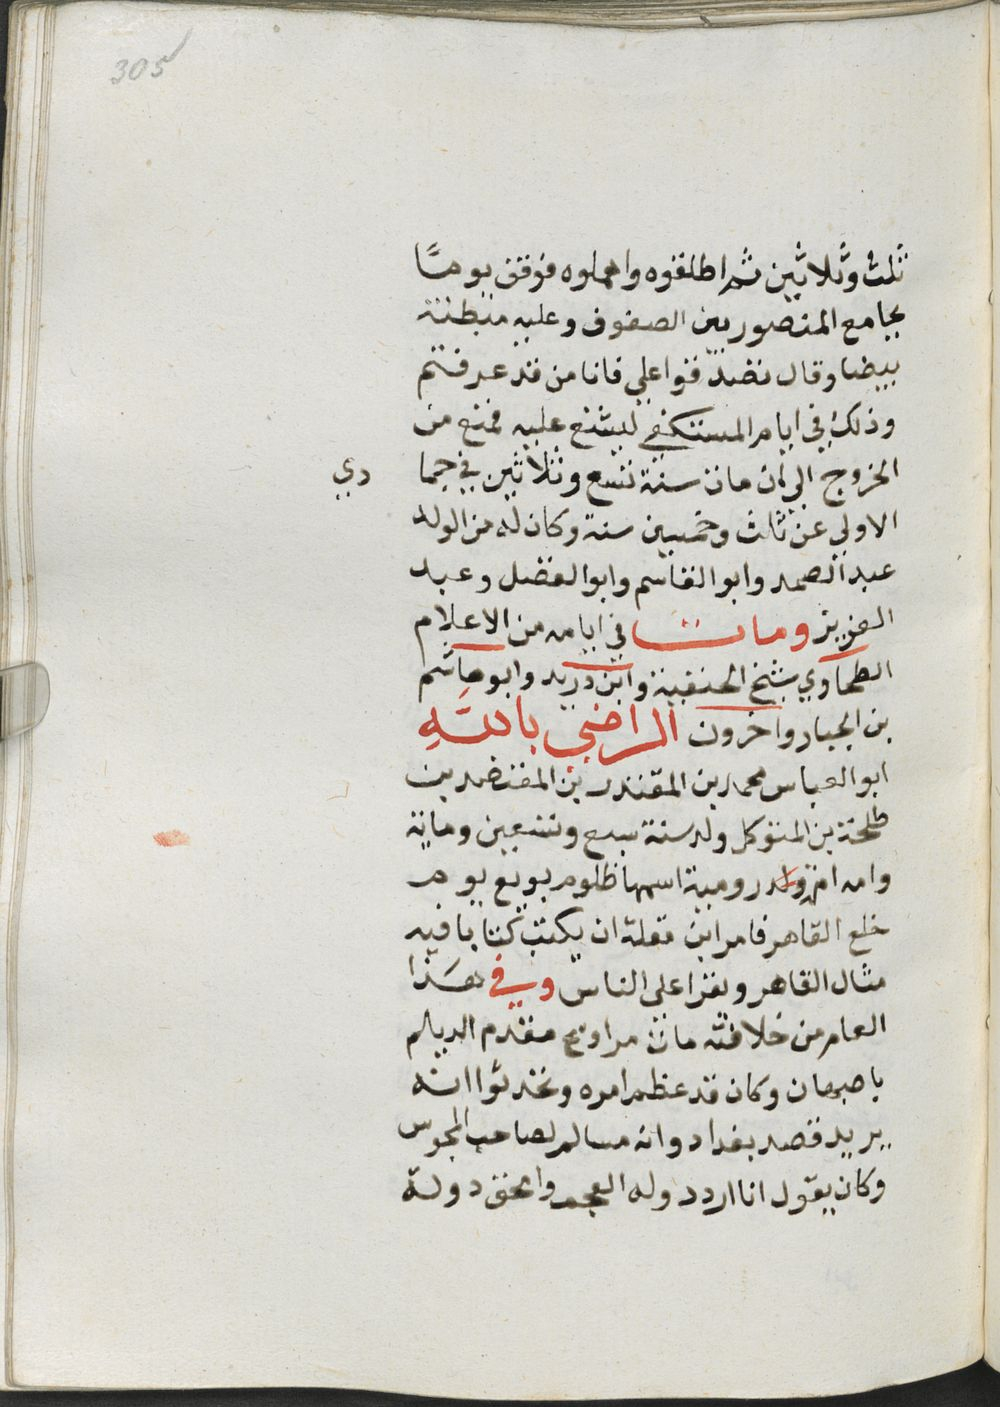 305
ثلث وثلاثين ثم اطلقوه واهملوه فوقف يوما
بجامع المنصور بين الصفوف وعليه مبطنة
بيضا وقال تصدقوا علي فانا من قد عرفتم
وذلك في ايام المستكفي ليشنع عليه فمنع من
الخروج الى ان مات سنة تسع وثلاثين في جما دي
الاولى عن ثلث وخمسين سنة وكان له من الولد
عبد الصمد وابو القاسم وابو الفضل وعبد
العزيز ومات في ايامه من الاعلام
الطحاوي شيخ الحنفية وابن دريد وابو هاشم
بن الجبار واخرون الراضي بالله
ابو العباس محمد بن المقتدر بن المعتضد بن
طلحة بن المتوكل ولد سنة سبع وتسعين وماية
وامه ام ولد رومية اسمها ظلوم بويع يوم
خلع القاهر فامر ابن مقلة ان يكتب كتابا فيه
مثال القاهر ويقرا على الناس وفي هذا
العام من خلافته مات مراويح مقدم الديلم
باصبهان وكان قد عظم امره وتحدثوا انه
يريد قصد بغداد وانه مسالم لصاحب المجوس
وكان يقول انا ارد دولة العجم وامحق دولة